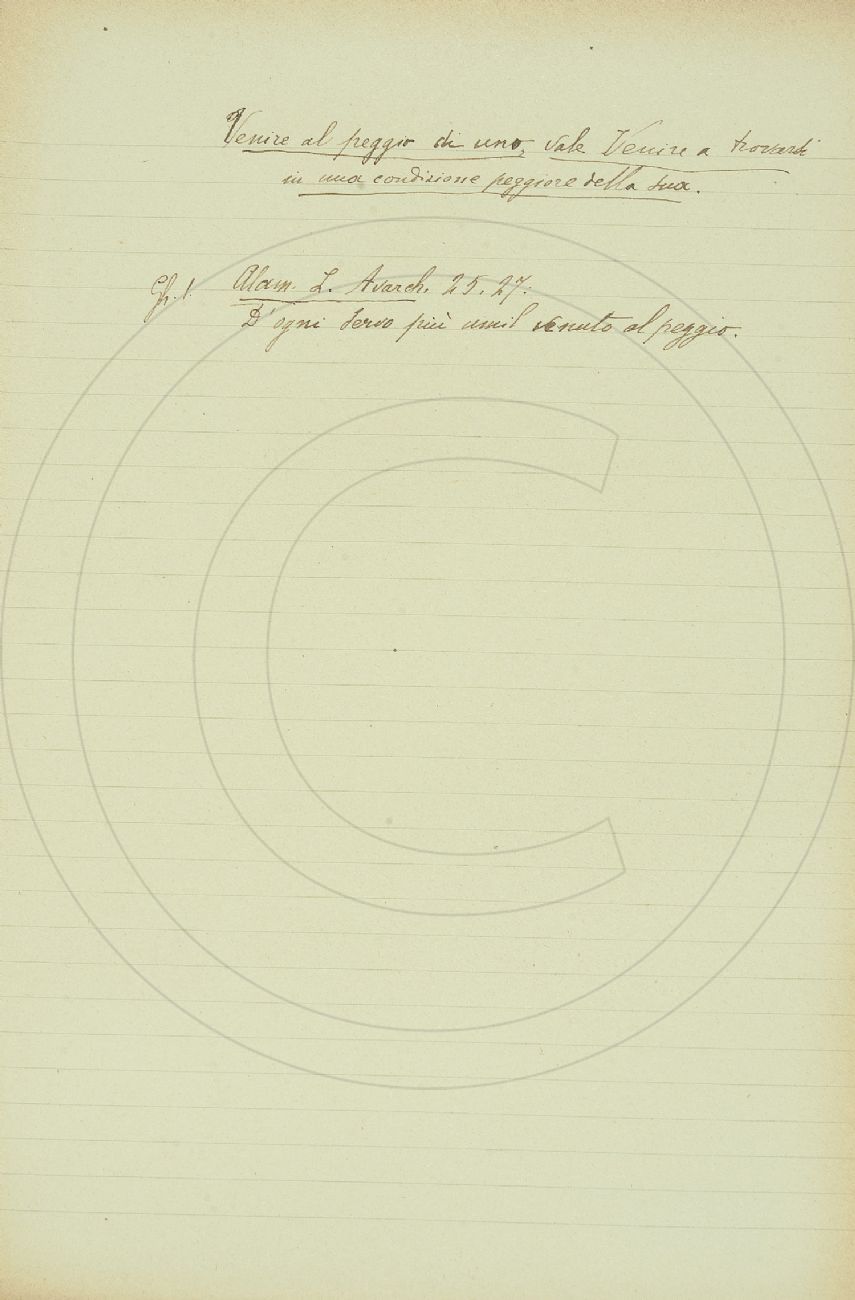 Venire al peggio di uno, vale Venire a trovarsi
in una condizione peggiore della sua.
Gh. 1. Alam. L. Avarch. 25. 27:
D'ogni servo più umil venuto al peggio.